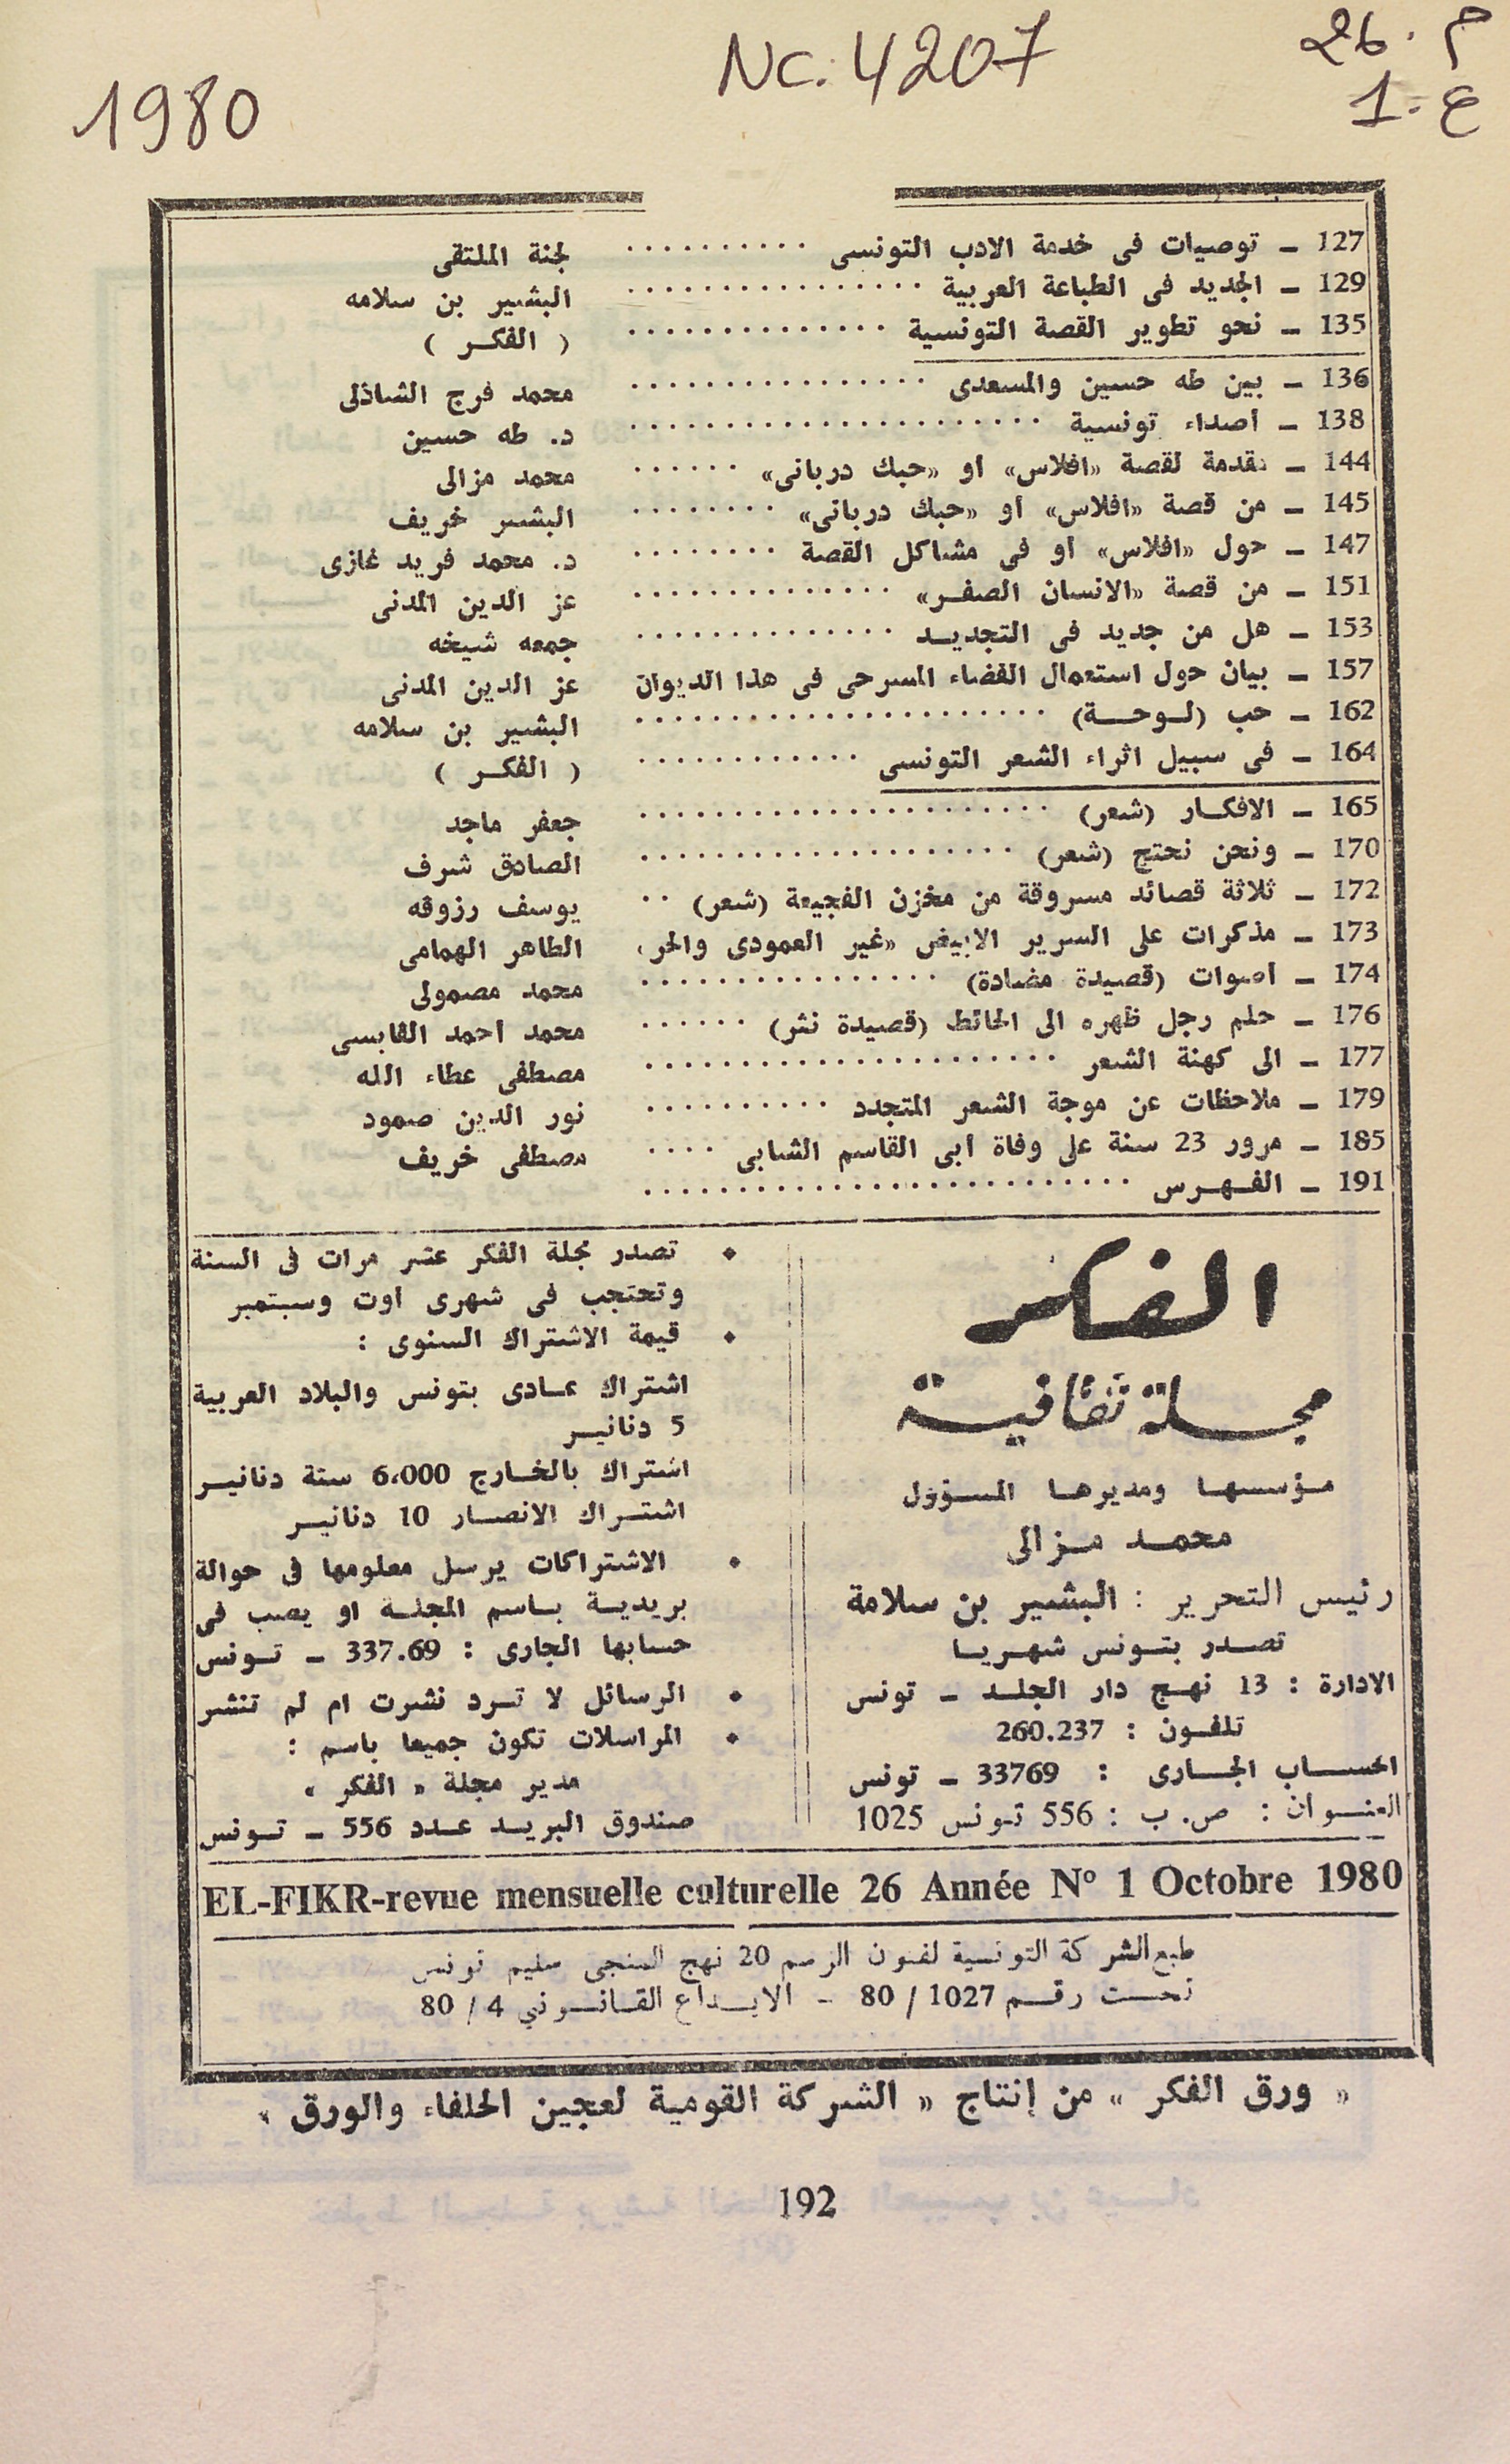 م . 26
ع . 1
Nc: 4207
1980
127 ـ توصيات فى خدمة الادب التونسى .......... لجنة الملتقى
129 ـ الجديد فى الطباعة العربية ................ البشير بن سلامه
135 ـ نحو تطوير القصة التونسية .............. ( الفكـــر )
136 ـ بين طه حسين والمسعدى ................ محمد فرج الشاذلى
138 ـ أصداء تونسية ...................... د. طه حسين
144 ـ مقدمة لقصة «افلاس» أو «حبك دربانى» ...... محمد مزالى
145 ـ من قصة «افلاس» أو «حبك دربانى» ........ البشير خريف
147 ـ حول «افلاس» أو فى مشاكل القصة ........ د. محمد فريد غازى
151 ـ من قصة «الانسان الصفـــر» .............. عز الدين المدنى
153 ـ هل من جديد فى التجديـــد .............. جمعه شيخه
157 ـ بيان حول استعمال الفضاء المسرحى فى هذا الديوان عز الدين المدنى
162 ـ حب (لـوحـــة) ...................... البشير بن سلامه
164 ـ فى سبيل اثراء الشعر التونسى ............ ( الفكـــر )
165 ـ الافكـــار (شعر) ...................... جعفر ماجد
170 ـ ونحن نحتج (شعر) .................... الصادق شرف
172 ـ ثلاثة قصائد مسروقة من مخزن الفجيعة (شعر) .. يوسف رزوقه
173 ـ مذكرات على السرير الابيض «غير العمودى والحر» الطاهر الهمامى
174 ـ أصوات (قصيدة مضادة) ................ محمد مصمولى
176 ـ حلم رجل ظهره الى الحائط (قصيدة نثر) ...... محمد أحمد القابسى
177 ـ الى كهنة الشعر ...................... مصطفى عطاء الله
179 ـ ملاحظات عن موجة الشعر المتجدد .......... نور الدين صمود
185 ـ مرور 23 سنة على وفاة أبى القاسم الشابى .... مصطفى خريف
191 ـ الفـهـرس ..........................
الفكر
مجلة ثقافية
مـؤسسهـا ومديرهـا المسـؤول
محمـد مـزالى
رئيس التحرير : البشير بن سلامة
تصـدر بتـونس شهـريـا
الادارة : 13 نهـج دار الجلـد ـ تونس
تلفـون : 260.237
الحسـاب الجـارى : 33769 ـ تونس
العنـوان : ص. ب : 556 تونس 1025
• تصدر مجلة الفكر عشر مرات فى السنة
وتحتجب فى شهرى أوت وسبتمبر
• قيمة الاشتراك السنوى :
اشتراك عـادى بتونس والبلاد العربية
5 دنانيـر
اشتراك بالخـارج 6،000 ستة دنانيـر
اشتـراك الانصـار 10 دنانيـر
• الاشتراكات يرسل معلومها فى حوالة
بريديـة بـاسم المجلـة او يصب فى
حسابها الجارى : 337.69 ـ تـونس
• الرسائل لا تـرد نشرت ام لم تنشر
• المراسلات تكون جميعا باسم :
مدير مجلة « الفكر »
صندوق البريـد عـدد 556 ـ تـونس
EL-FIKR-revue mensuelle culturelle 26 Année N° 1 Octobre 1980
طبع الشركة التونسية لفنون الرسم 20 نهج المنجى سليم تونس
تحـت رقـم 1027 / 80 - الايـداع القـانـوني 4 / 80
« ورق الفكر » من إنتاج « الشركة القومية لعجين الحلفاء والورق »
192